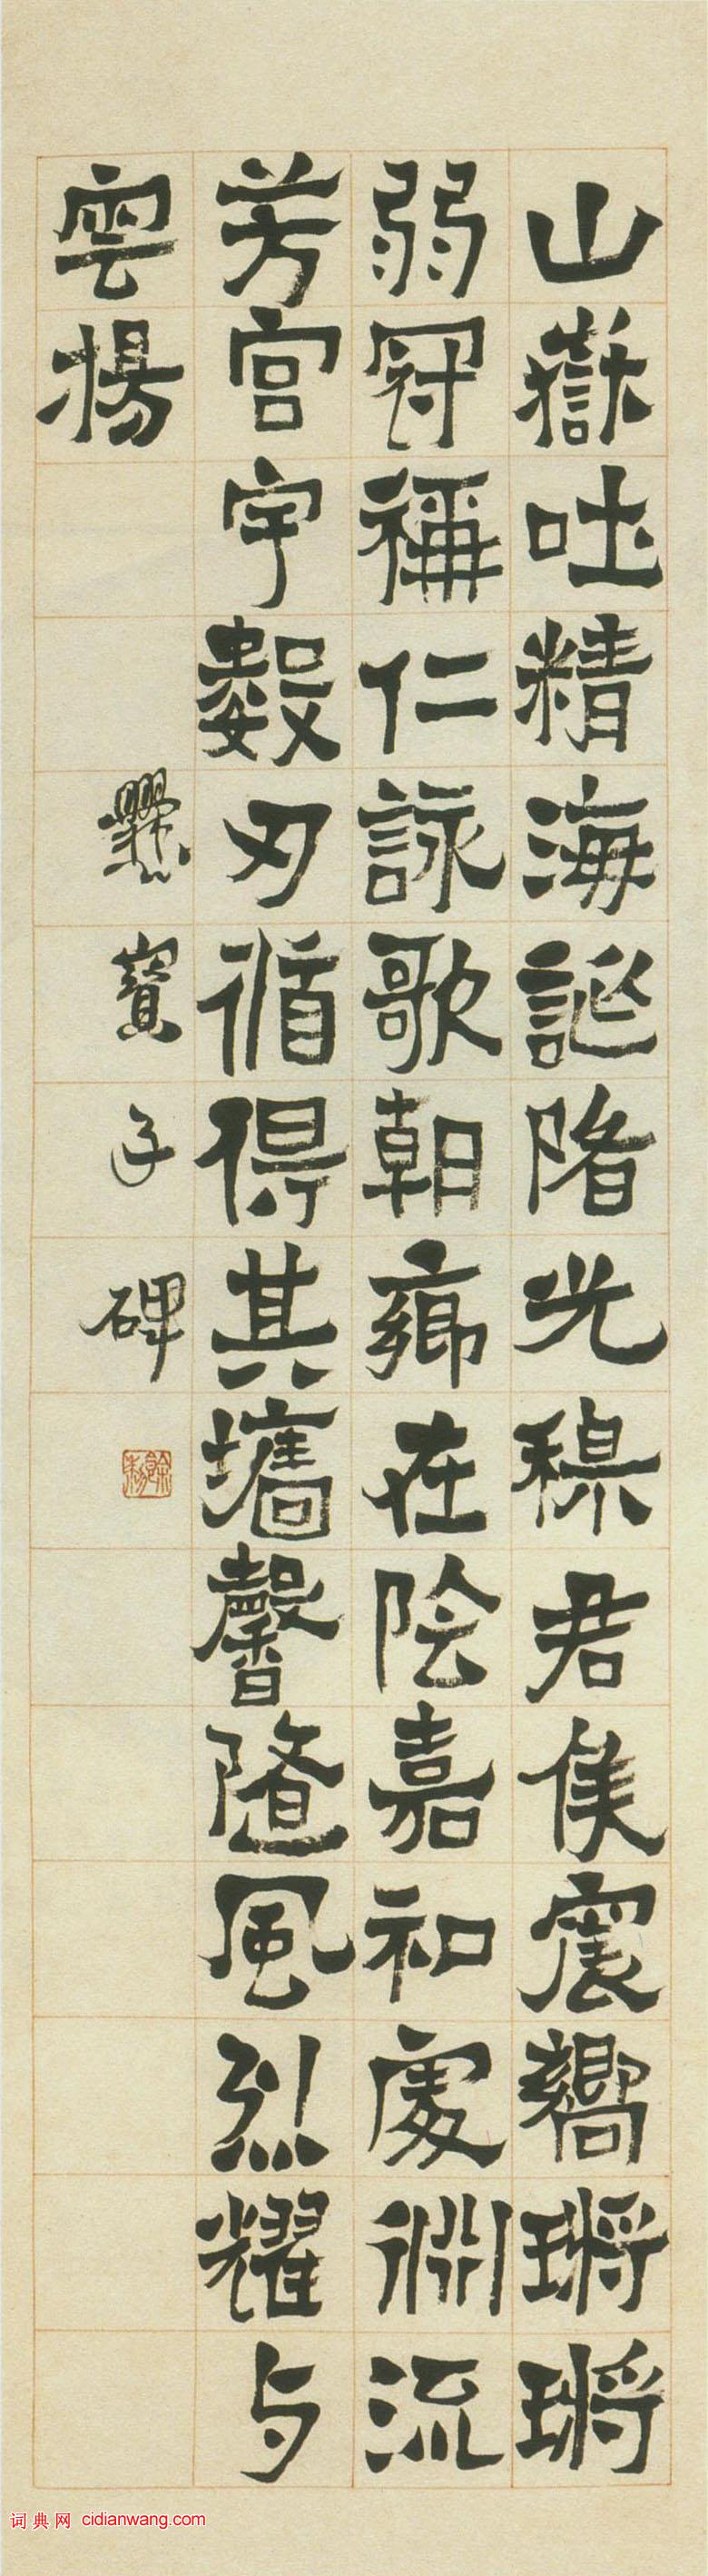 山嶽吐精海誕陏光穆君侯震嚮鏘鏘
弱冠稱仁詠歌朝鄉在陰嘉和處渊流
芳宮宇數刃循得其墻馨隨風烈耀与
雲揚
爨寶子碑
詞典网 cidianwang.com